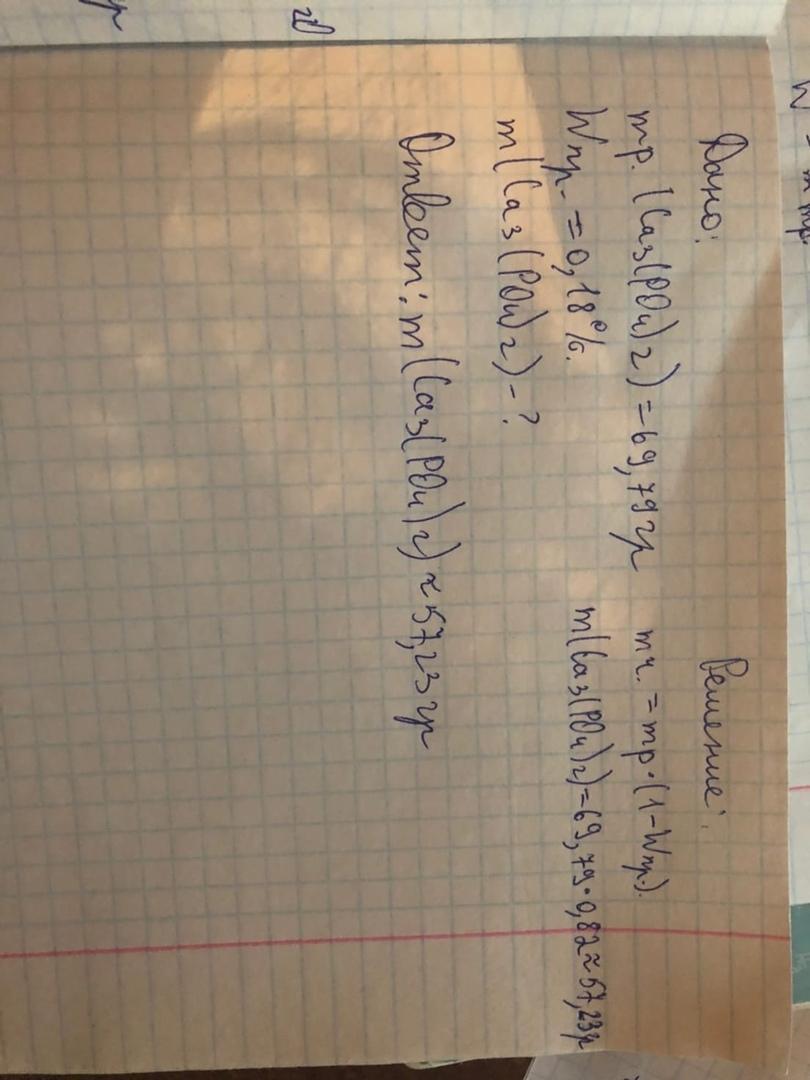 Дано:
mр. (Ca3(PO4)2) = 69,79 гр
Wпр. = 0,18%.
m(Ca3(PO4)2) - ?
Решение:
mч. = mр·(1-Wпр.).
m(Ca3(PO4)2) = 69,79·0,82≈57,23гр
Ответ: m(Ca3(PO4)2) ≈ 57,23 гр